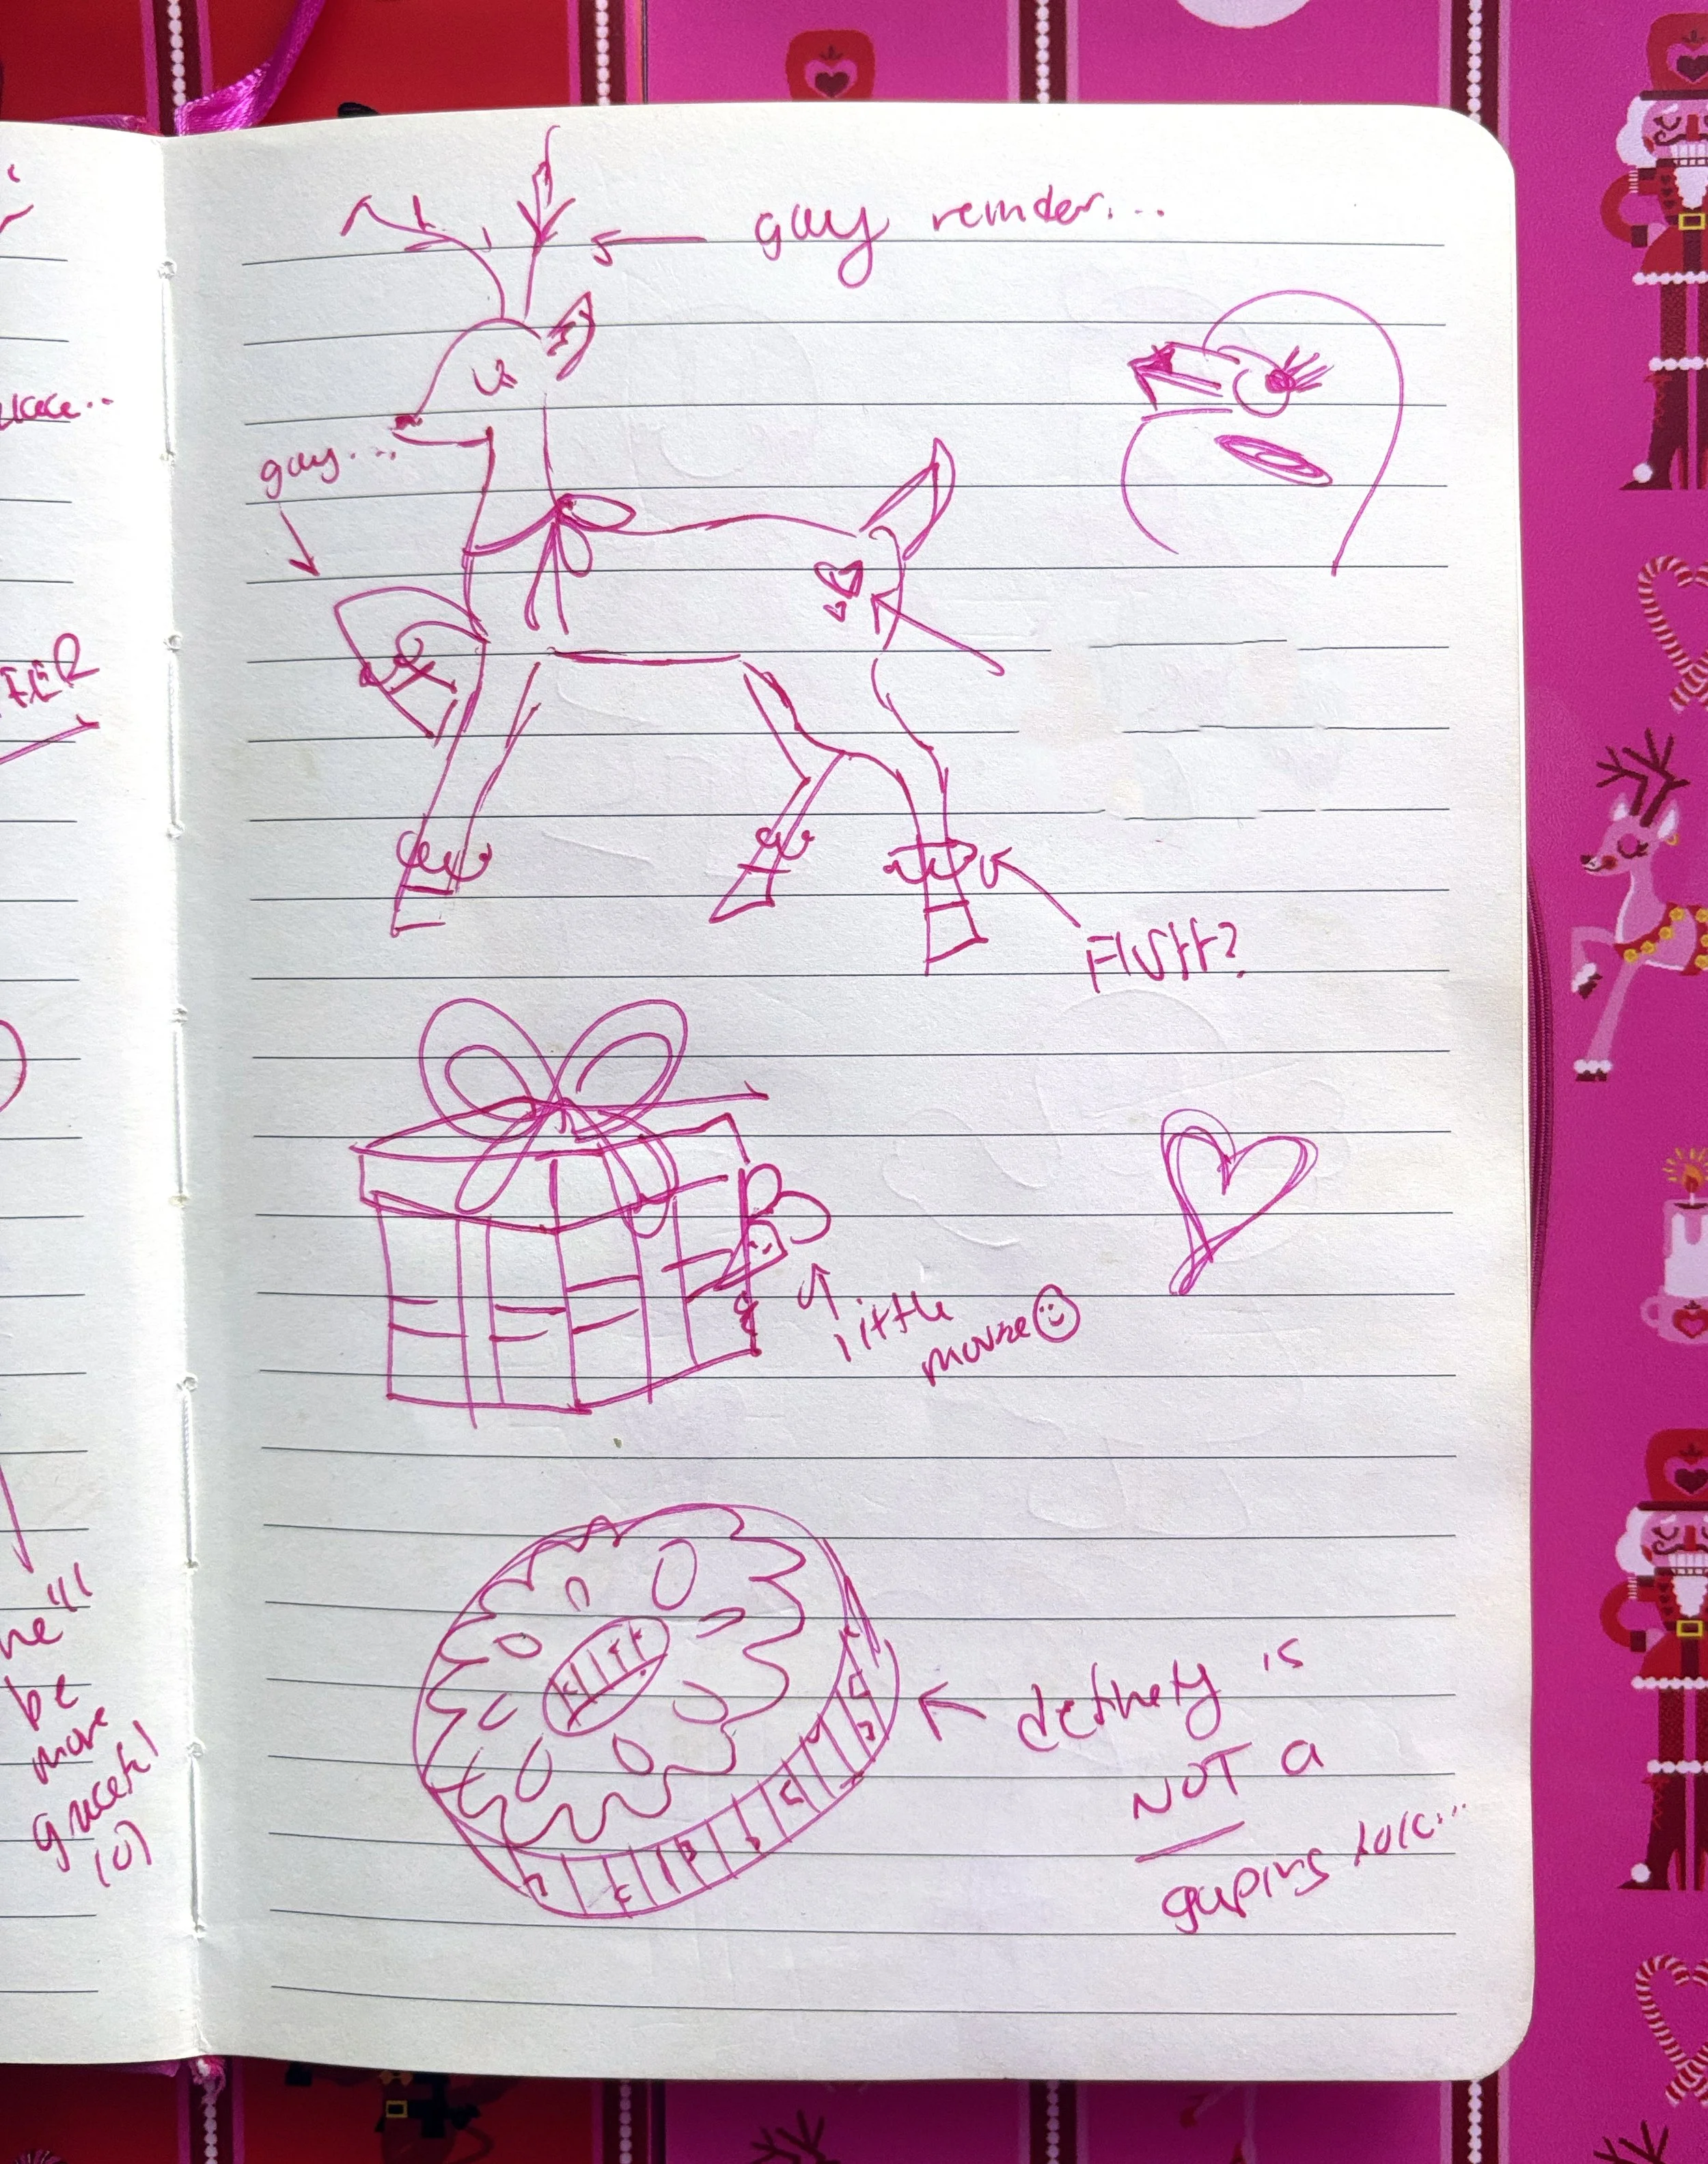 gay reinder...
gay...
FIUFF?
little
mouse
definety is
NOT a
gaping hole...
FER
he'll
be
more
graceful